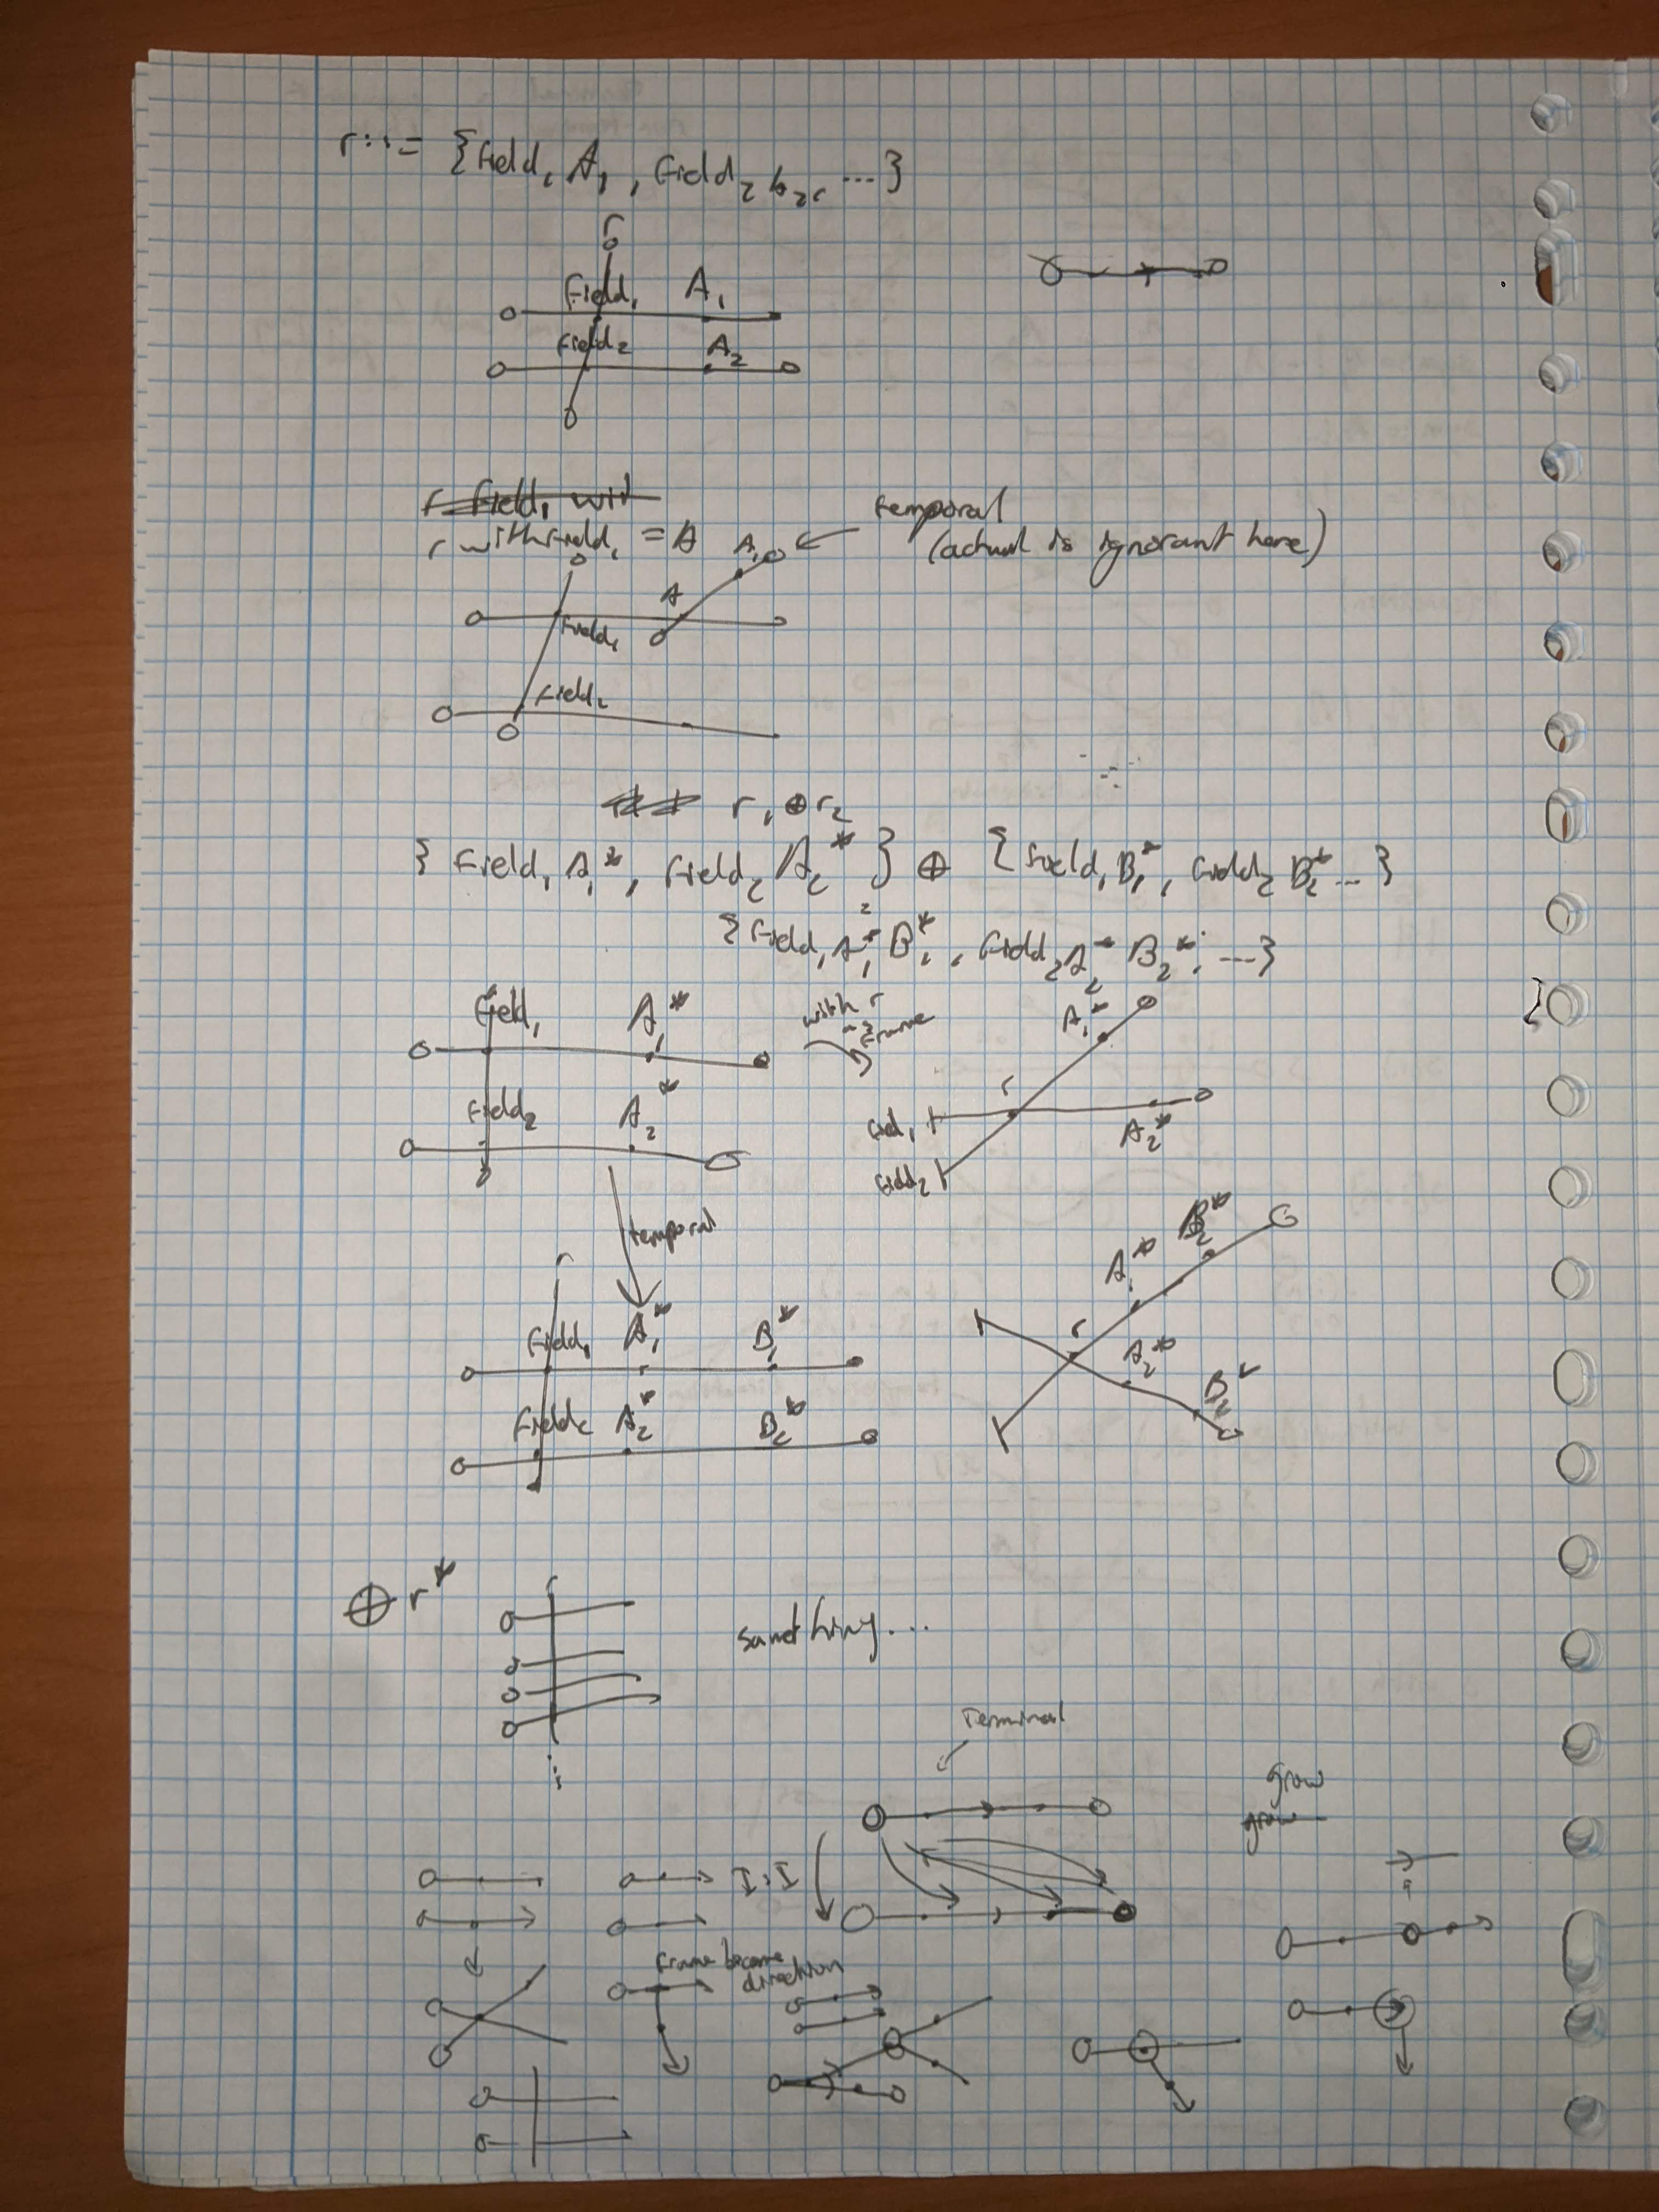 r ::= {Field₁ A₁, Field₂ A₂, ...}
r
Field₁ A₁
Field₂ A₂
r Field₁ wit
r with Field₁ = A
A₁
temporal
(actual is ignorant here)
A
Field₁
Field₂
r₁ ⊕ r₂
{Field₁ A₁*, Field₂ A₂*} ⊕ {Field₁ B₁*, Field₂ B₂* ...}
{Field₁ A₁* B₁*, Field₂ A₂* B₂*, ...}
Field₁ A₁*
with r
as frame
A₁*
r
Field₂ A₂*
Field₁
A₂*
Field₂
temporal
B₂*
A₁*
r
Field₁ A₁* B₁*
r
A₂*
B₂*
Field₂ A₂* B₂*
⊕ r*
r
something...
Terminal
grow
grow
I:I
Frame become
direction